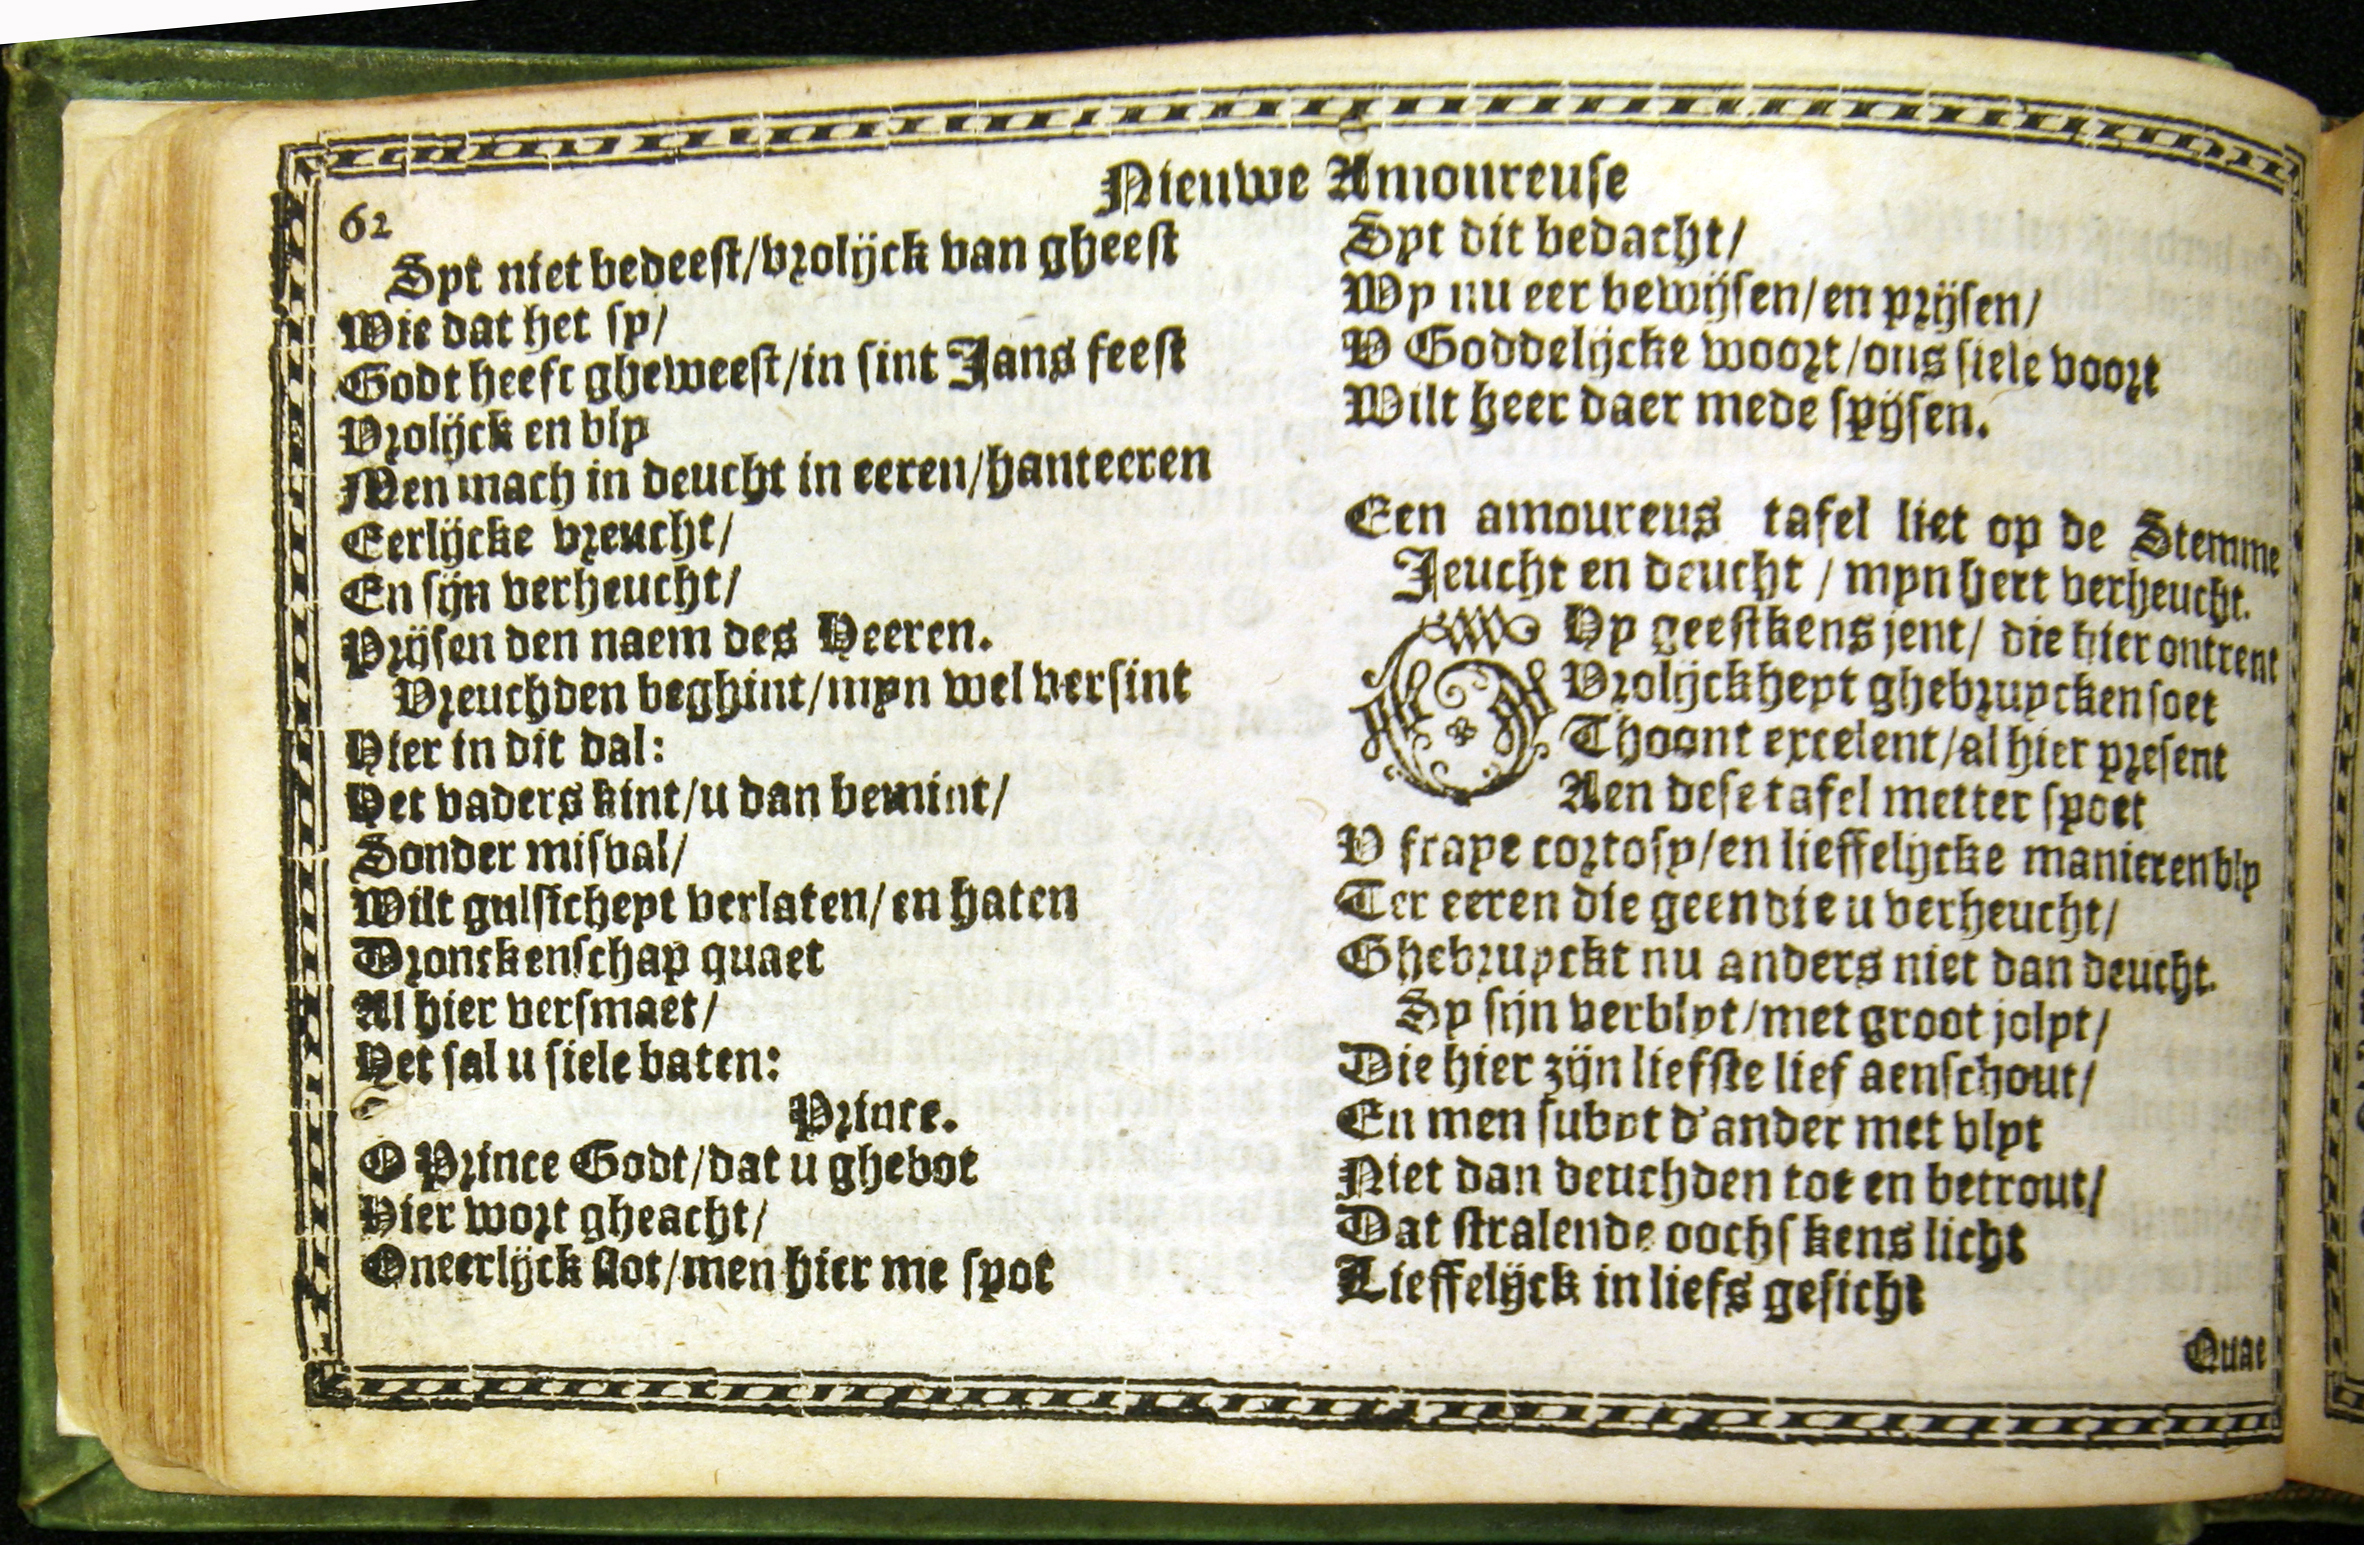 Nieuwe Amoureuse
62
Syt niet bedeest/vrolijck van gheest
Wie dat het sy/
Godt heeft gheweest/in sint Jans feest
Vrolijck en bly
Men mach in deucht in eeren/hanteeren
Eerlijcke vreucht/
En sijn verheucht/
Prijsen den naem des Heeren.
Vreuchden beghint/myn wel versint
Hier in dit dal:
Het vaders kint/u dan bemint/
Sonder misval/
Wilt gulsicheyt verlaten/en haten
Dronckenschap quaet
Al hier versmaet/
Het sal u siele baten:
Prince.
O Prince Godt/dat u ghebot
Hier wort gheacht/
Oneerlijck slot/men hier me spot
Syt dit bedacht/
Wy nu eer bewijsen/en prijsen/
V Goddelijcke woort/ons siele voort
Wilt heer daer mede spijsen.
Een amoureus tafel liet op de Stemme
Jeucht en deucht / myn hert verheucht.
Ghy geestkens jent/ die hier ontrent
Vrolijckheyt ghebruycken soet
Thoont excelent/al hier present
Aen dese tafel metter spoet
V fraye cortosy/en lieffelijcke manieren bly
Ter eeren die geen die u verheucht/
Ghebruyckt nu anders niet dan deucht.
Sy sijn verblyt/met groot jolyt/
Die hier zijn liefste lief aenschout/
En men subyt d'ander met vlyt
Niet dan deuchden toe en betrout/
Dat stralende oochskens licht
Lieffelijck in liefs gesicht
Quae